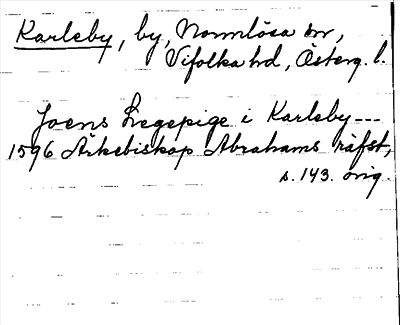 Karleby, by, Normlösa sn,
Vifolka hd, Österg. l.
Joens Legepige i Karleby---
1596 Ärkebiskop Abrahams räfst,
s. 143. orig.